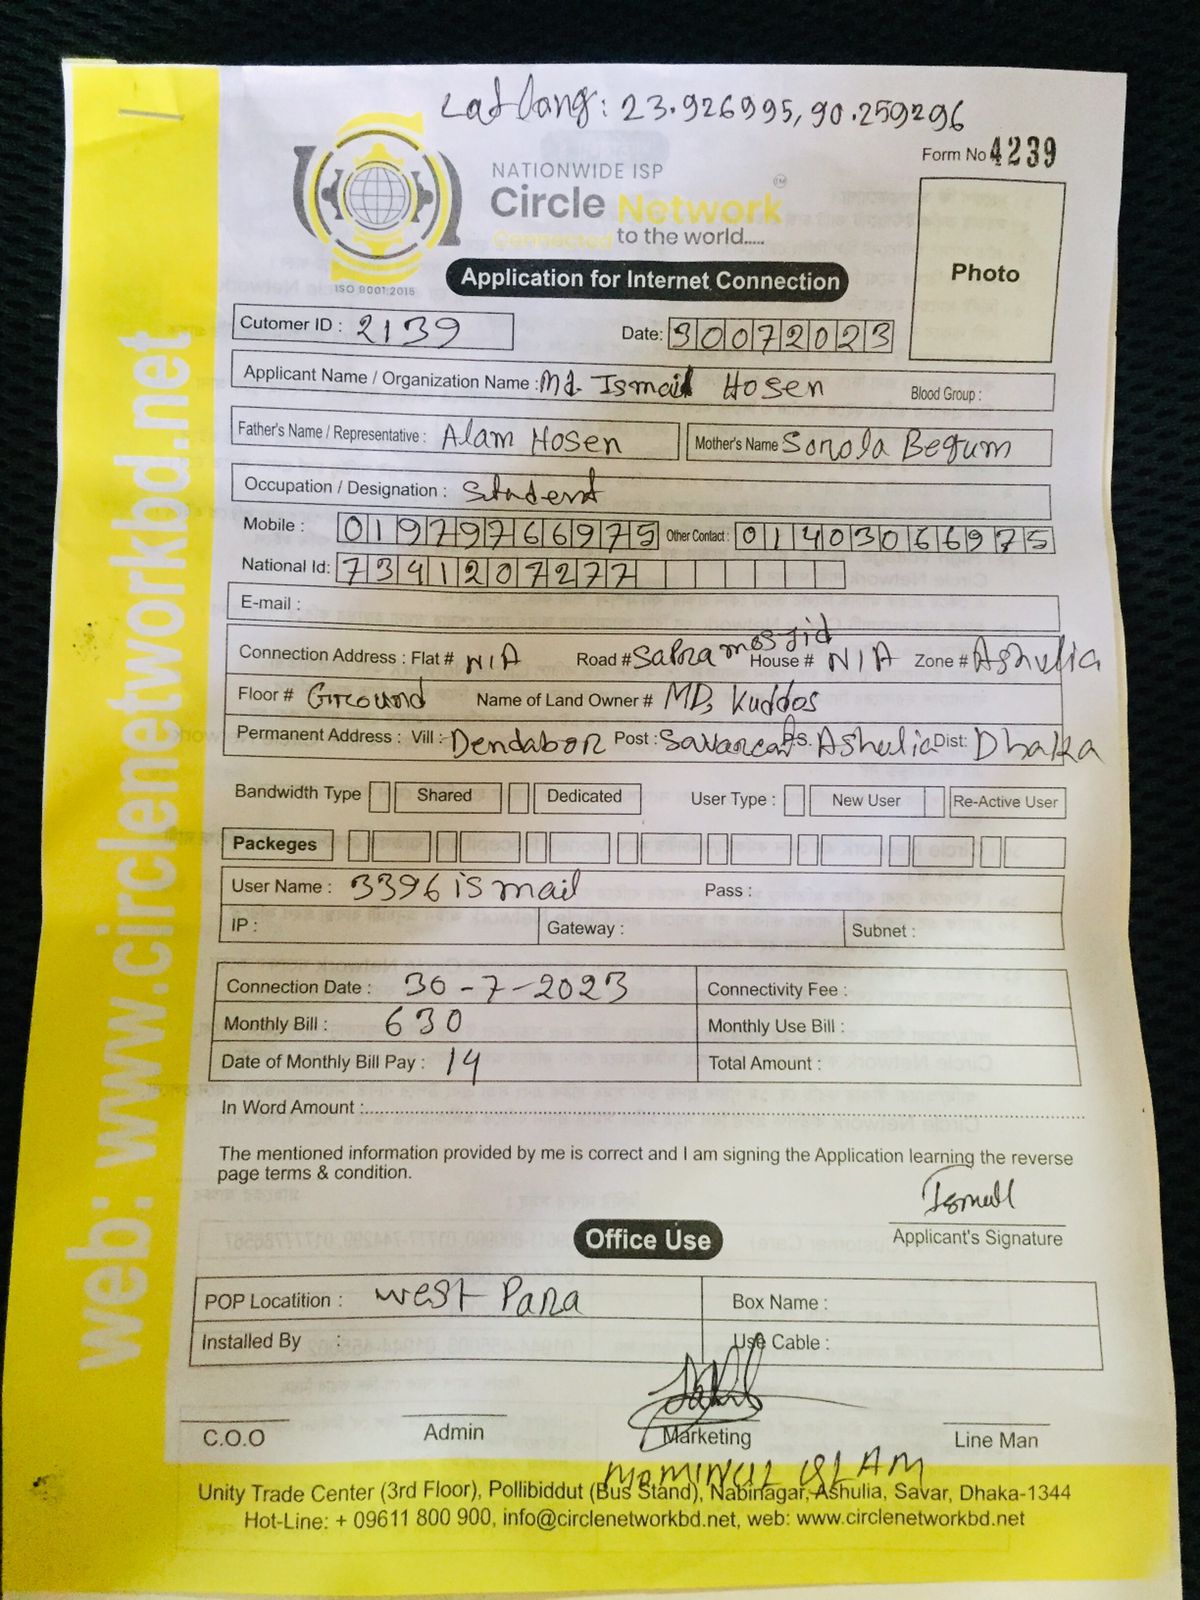 Lat Lang: 23.926995, 90.259296
Form No 4239
NATIONWIDE ISP
Circle Network
Connected to the world.....
ISO 9001:2015
Application for Internet Connection
Photo
Cutomer ID : 2139 Date: 30072023
Applicant Name / Organization Name : Md. Ismail Hosen Blood Group :
Father's Name / Representative : Alam Hosen Mother's Name Sonola Begum
Occupation / Designation : Student
Mobile : 01979766975 Other Contact : 01403066975
National Id: 7341207277
E-mail :
Connection Address : Flat # N/A Road # Sabra mosjid House # N/A Zone # Ashulia
Floor # Ground Name of Land Owner # MD, Kuddos
Permanent Address : Vill : Dendabor Post : P.S. Ashulia Dist: Dhaka
Bandwidth Type Shared Dedicated User Type : New User Re-Active User
Packeges
User Name : 3396ismail Pass :
IP : Gateway : Subnet :
Connection Date : 30-7-2023 Connectivity Fee :
Monthly Bill : 630 Monthly Use Bill :
Date of Monthly Bill Pay : 14 Total Amount :
In Word Amount :
The mentioned information provided by me is correct and I am signing the Application learning the reverse
page terms & condition.
Ismail
Applicant's Signature
Office Use
POP Locatition : West Para Box Name :
Installed By : Use Cable :
C.O.O Admin Marketing Line Man
MOMINUL ISLAM
Unity Trade Center (3rd Floor), Pollibiddut (Bus Stand), Nabinagar, Ashulia, Savar, Dhaka-1344
Hot-Line: + 09611 800 900, info@circlenetworkbd.net, web: www.circlenetworkbd.net
web: www.circlenetworkbd.net